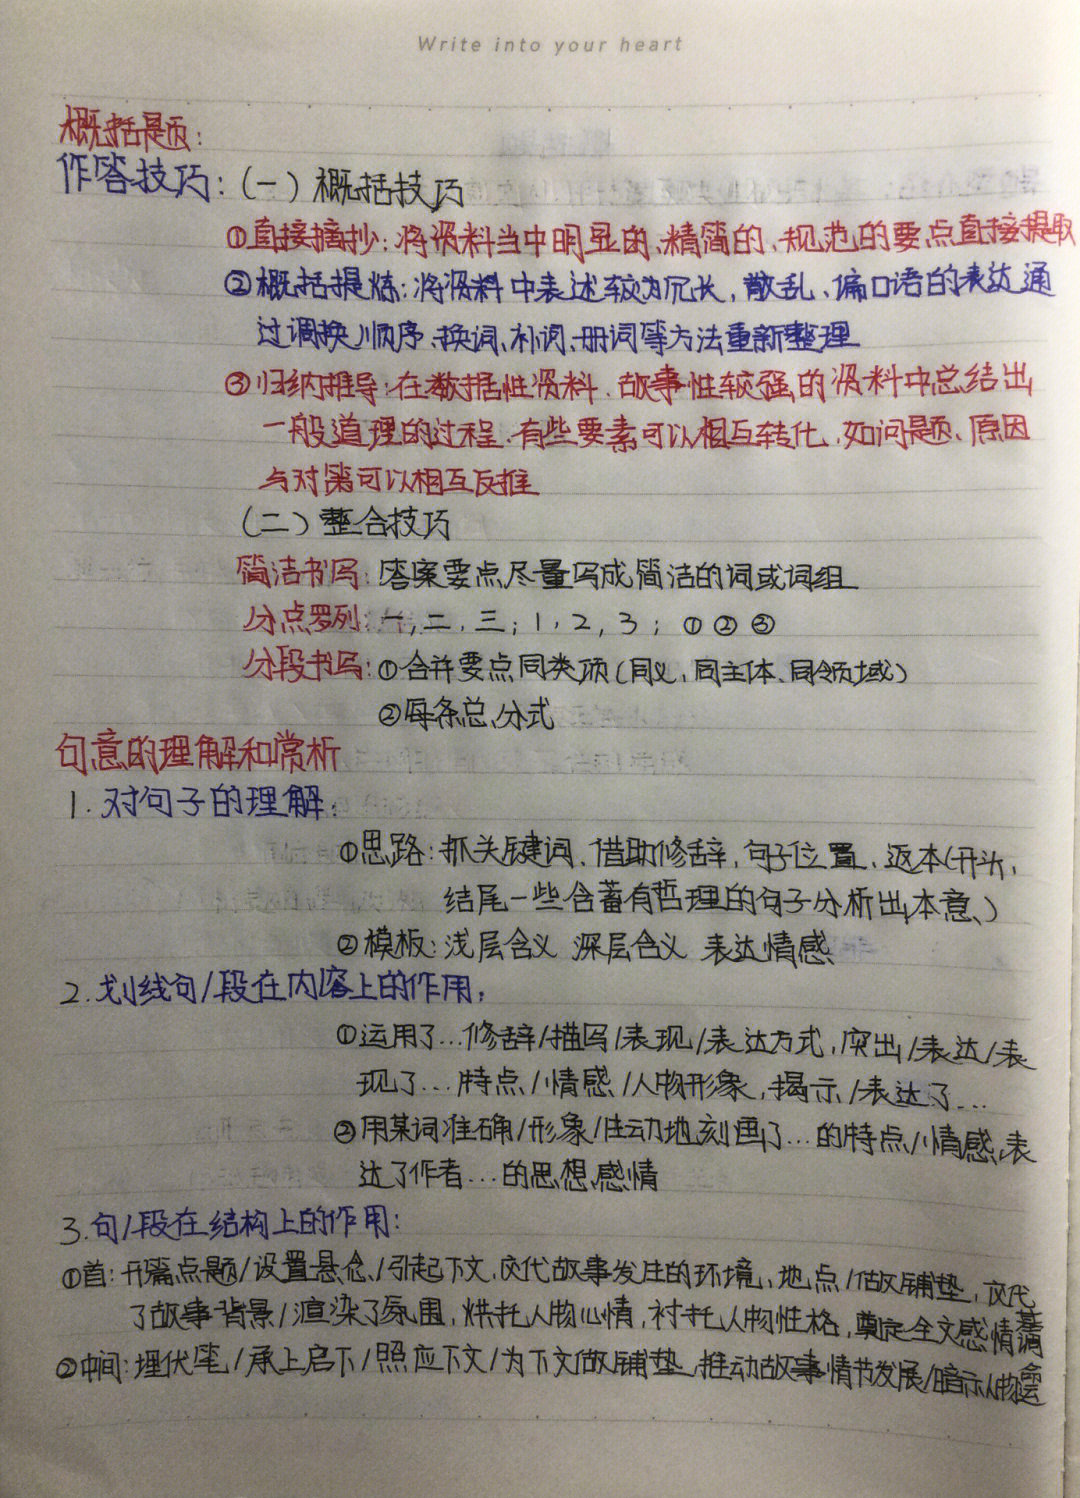 Write into your heart
概括题:
作答技巧:(一)概括技巧
①直接摘抄:将资料当中明显的、精简的、规范的要点直接提取
②概括提炼:将资料中表述较为冗长,散乱、偏口语的表达通
过调换顺序、换词、补词、删词等方法重新整理
③归纳推导:在数据性资料、故事性较强的资料中总结出
一般道理的过程.有些要素可以相互转化,如问题、原因
与对策可以相互反推
(二)整合技巧
简洁书写:答案要点尽量写成简洁的词或词组
分点罗列:一,二,三;1,2,3;①②③
分段书写:①合并要点同类项(同义,同主体、同领域)
②每条总、分式
句意的理解和赏析
1.对句子的理解:
①思路:抓关键词、借助修辞,句子位置、返本(开头,
结尾一些含蓄有哲理的句子分析出本意、)
②模板:浅层含义 深层含义 表达情感
2.划线句/段在内容上的作用:
①运用了...修辞/描写/表现/表达方式,突出/表达/表
现了...特点/情感/人物形象,揭示/表达了...
②用某词准确/形象/生动地刻画了...的特点/情感,表
达了作者...的思想感情
3.句/段在结构上的作用:
①首:开篇点题/设置悬念/引起下文,交代故事发生的环境、地点/做铺垫,交代
了故事背景/渲染了氛围,烘托人物心情,衬托人物性格,奠定全文感情基调
②中间:埋伏笔/承上启下/照应下文/为下文做铺垫,推动故事情节发展/暗示人物命运